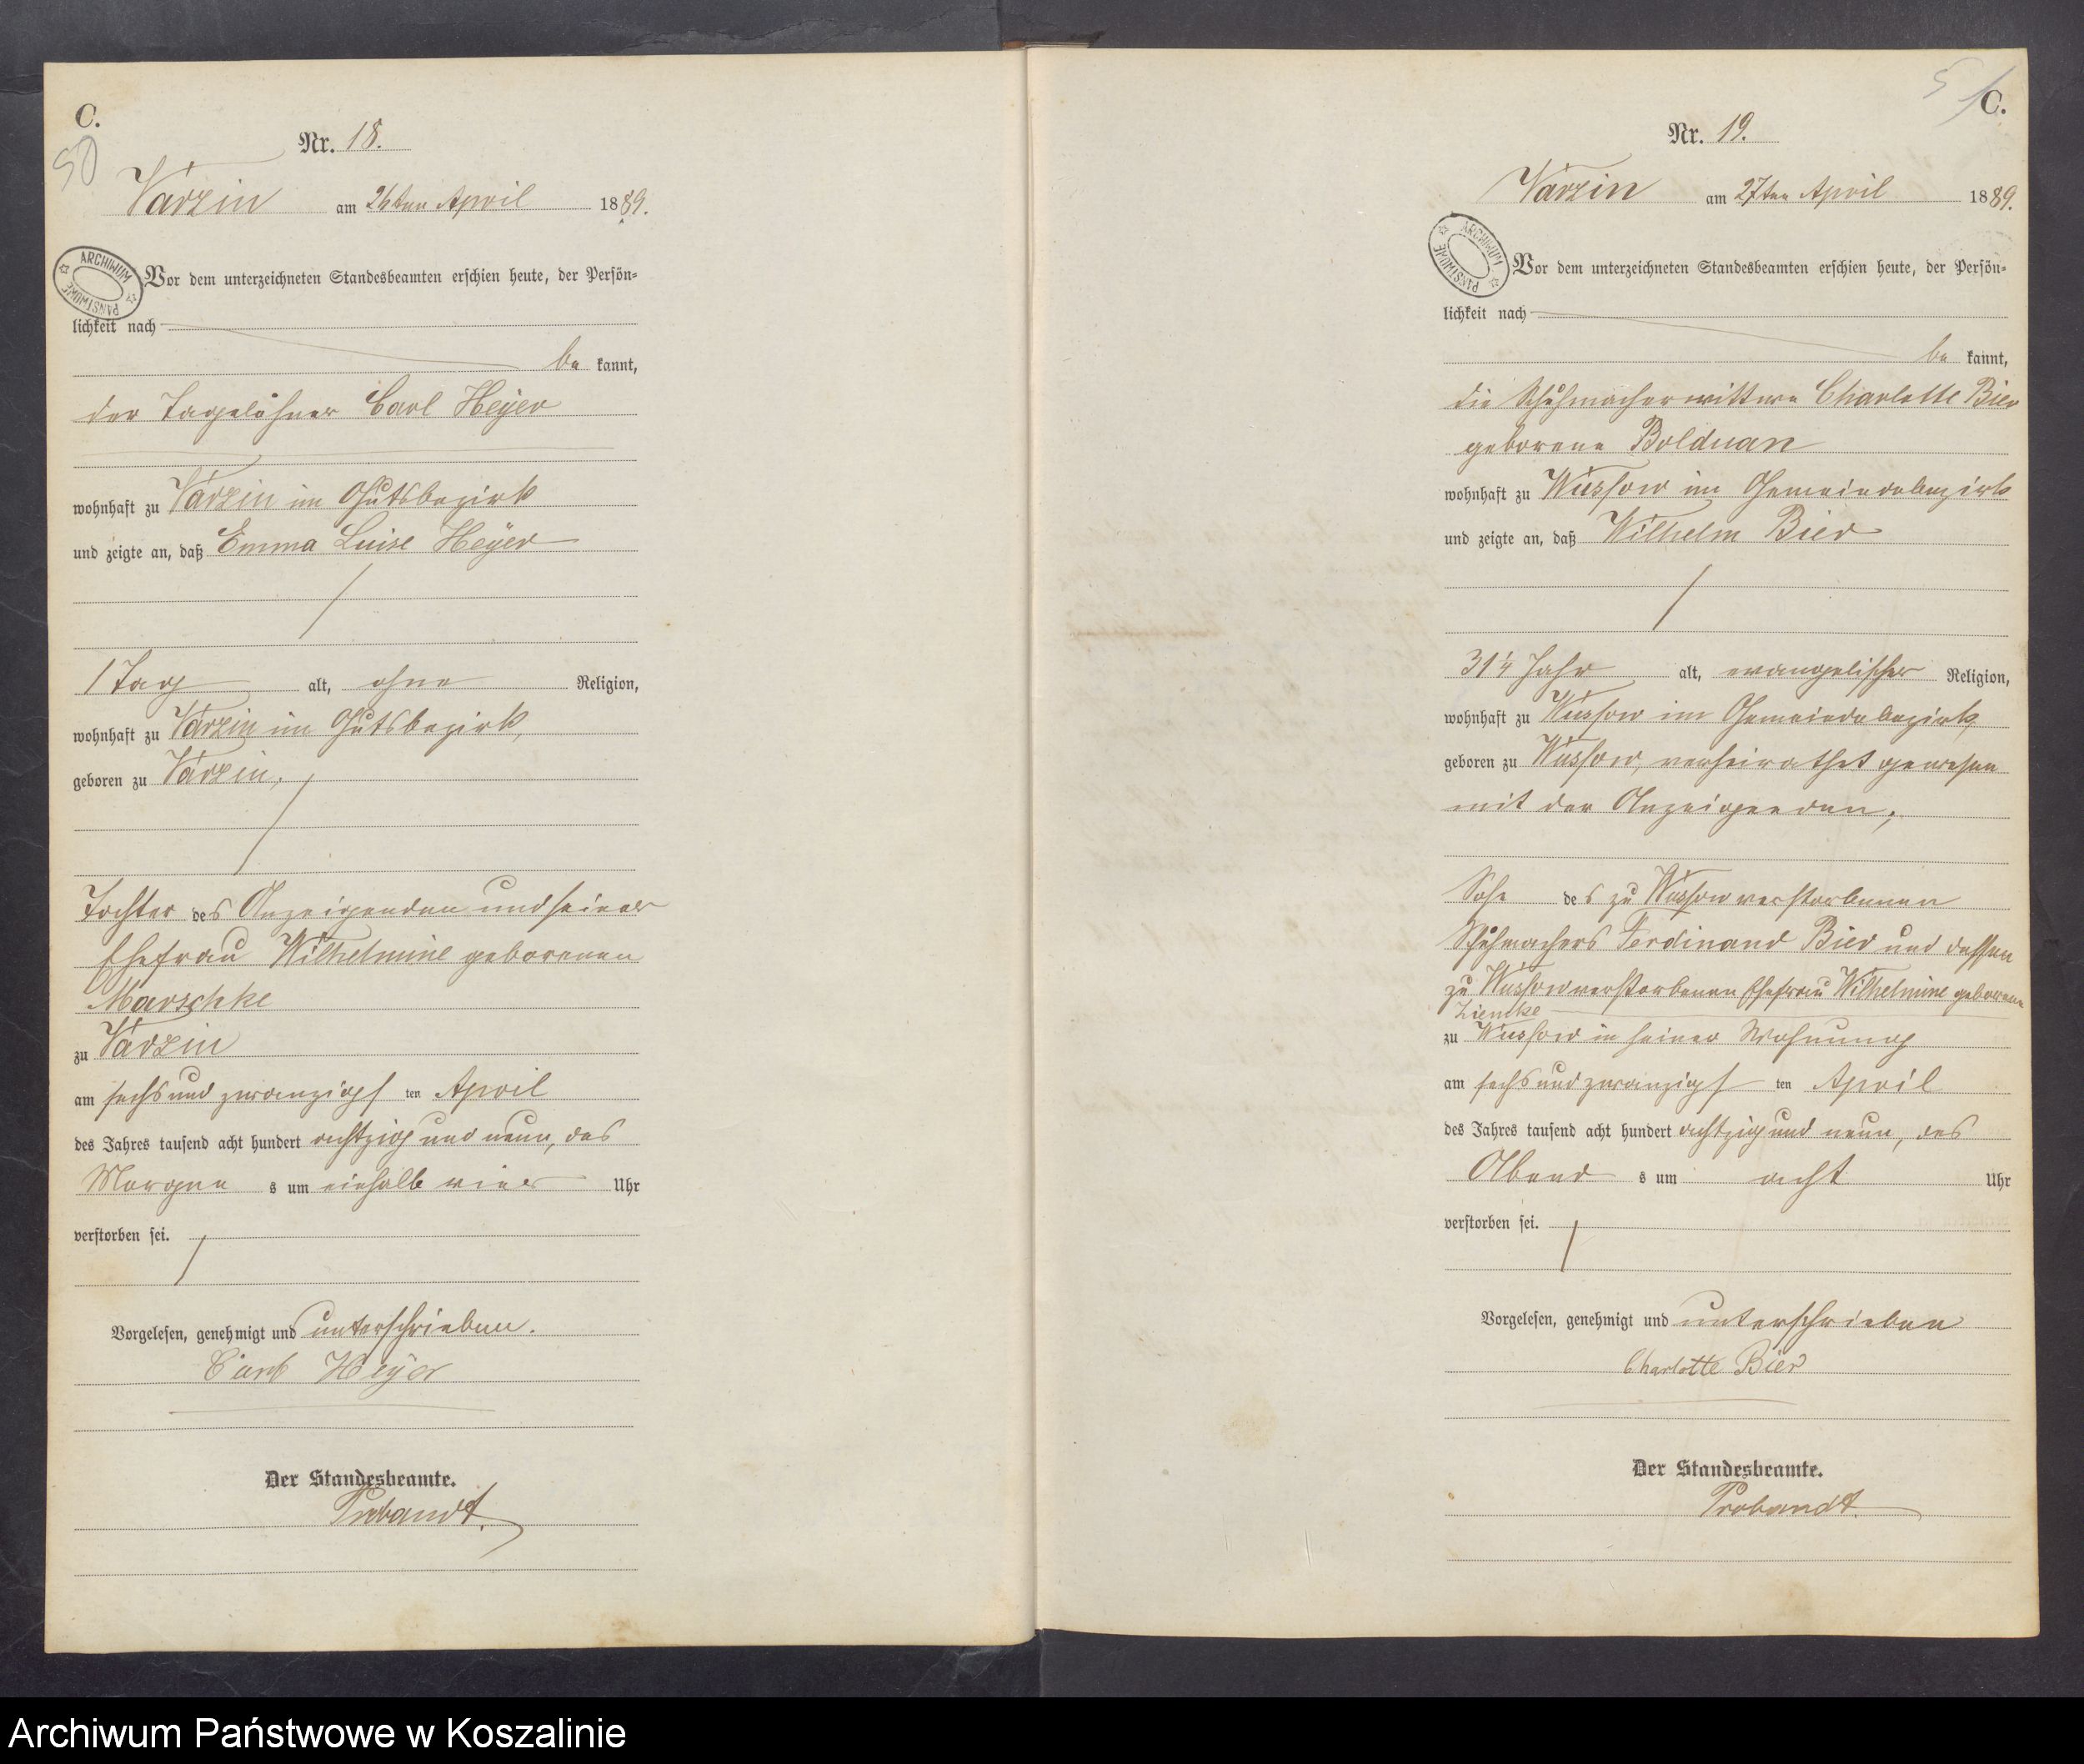 C.
50
Nr. 18.
Varzin am 26ten April 1889.
ARCHIWUM PAŃSTWOWE
Vor dem unterzeichneten Standesbeamten erschien heute, der Persön-
lichkeit nach
be kannt,
der Tagelöhner Carl Heyer
wohnhaft zu Varzin im Gutsbezirk
und zeigte an, daß Emma Luise Heyer
1 Tag alt, ohne Religion,
wohnhaft zu Varzin im Gutsbezirk,
geboren zu Varzin,
Tochter des Anzeigenden und seiner
Ehefrau Wilhelmine geborenen
Marschke
zu Varzin
am sechs und zwanzigs ten April
des Jahres tausend acht hundert achtzig und neun, des
Morgen s um einhalb vier Uhr
verstorben sei.
Vorgelesen, genehmigt und unterschrieben.
Carl Heyer
Der Standesbeamte.
Probandt.
51
C.
Nr. 19.
Varzin am 27ten April 1889.
ARCHIWUM PAŃSTWOWE
Vor dem unterzeichneten Standesbeamten erschien heute, der Persön-
lichkeit nach
be kannt,
die Schuhmacherwittwe Charlotte Bier
geborene Bolduan
wohnhaft zu Wussow im Gemeindebezirk
und zeigte an, daß Wilhelm Bier
31 1/4 Jahr alt, evangelischer Religion,
wohnhaft zu Wussow im Gemeindebezirk,
geboren zu Wussow, verheirathet gewesen
mit der Anzeigenden,
Sohn des zu Wussow verstorbenen
Schuhmachers Ferdinand Bier und dessen
zu Wussow verstorbenen Ehefrau Wilhelmine geborene
Zientke
zu Wussow in seiner Wohnung
am sechs und zwanzigs ten April
des Jahres tausend acht hundert achtzig und neun, des
Abend s um acht Uhr
verstorben sei.
Vorgelesen, genehmigt und unterschrieben
Charlotte Bier
Der Standesbeamte.
Probandt.
Archiwum Państwowe w Koszalinie